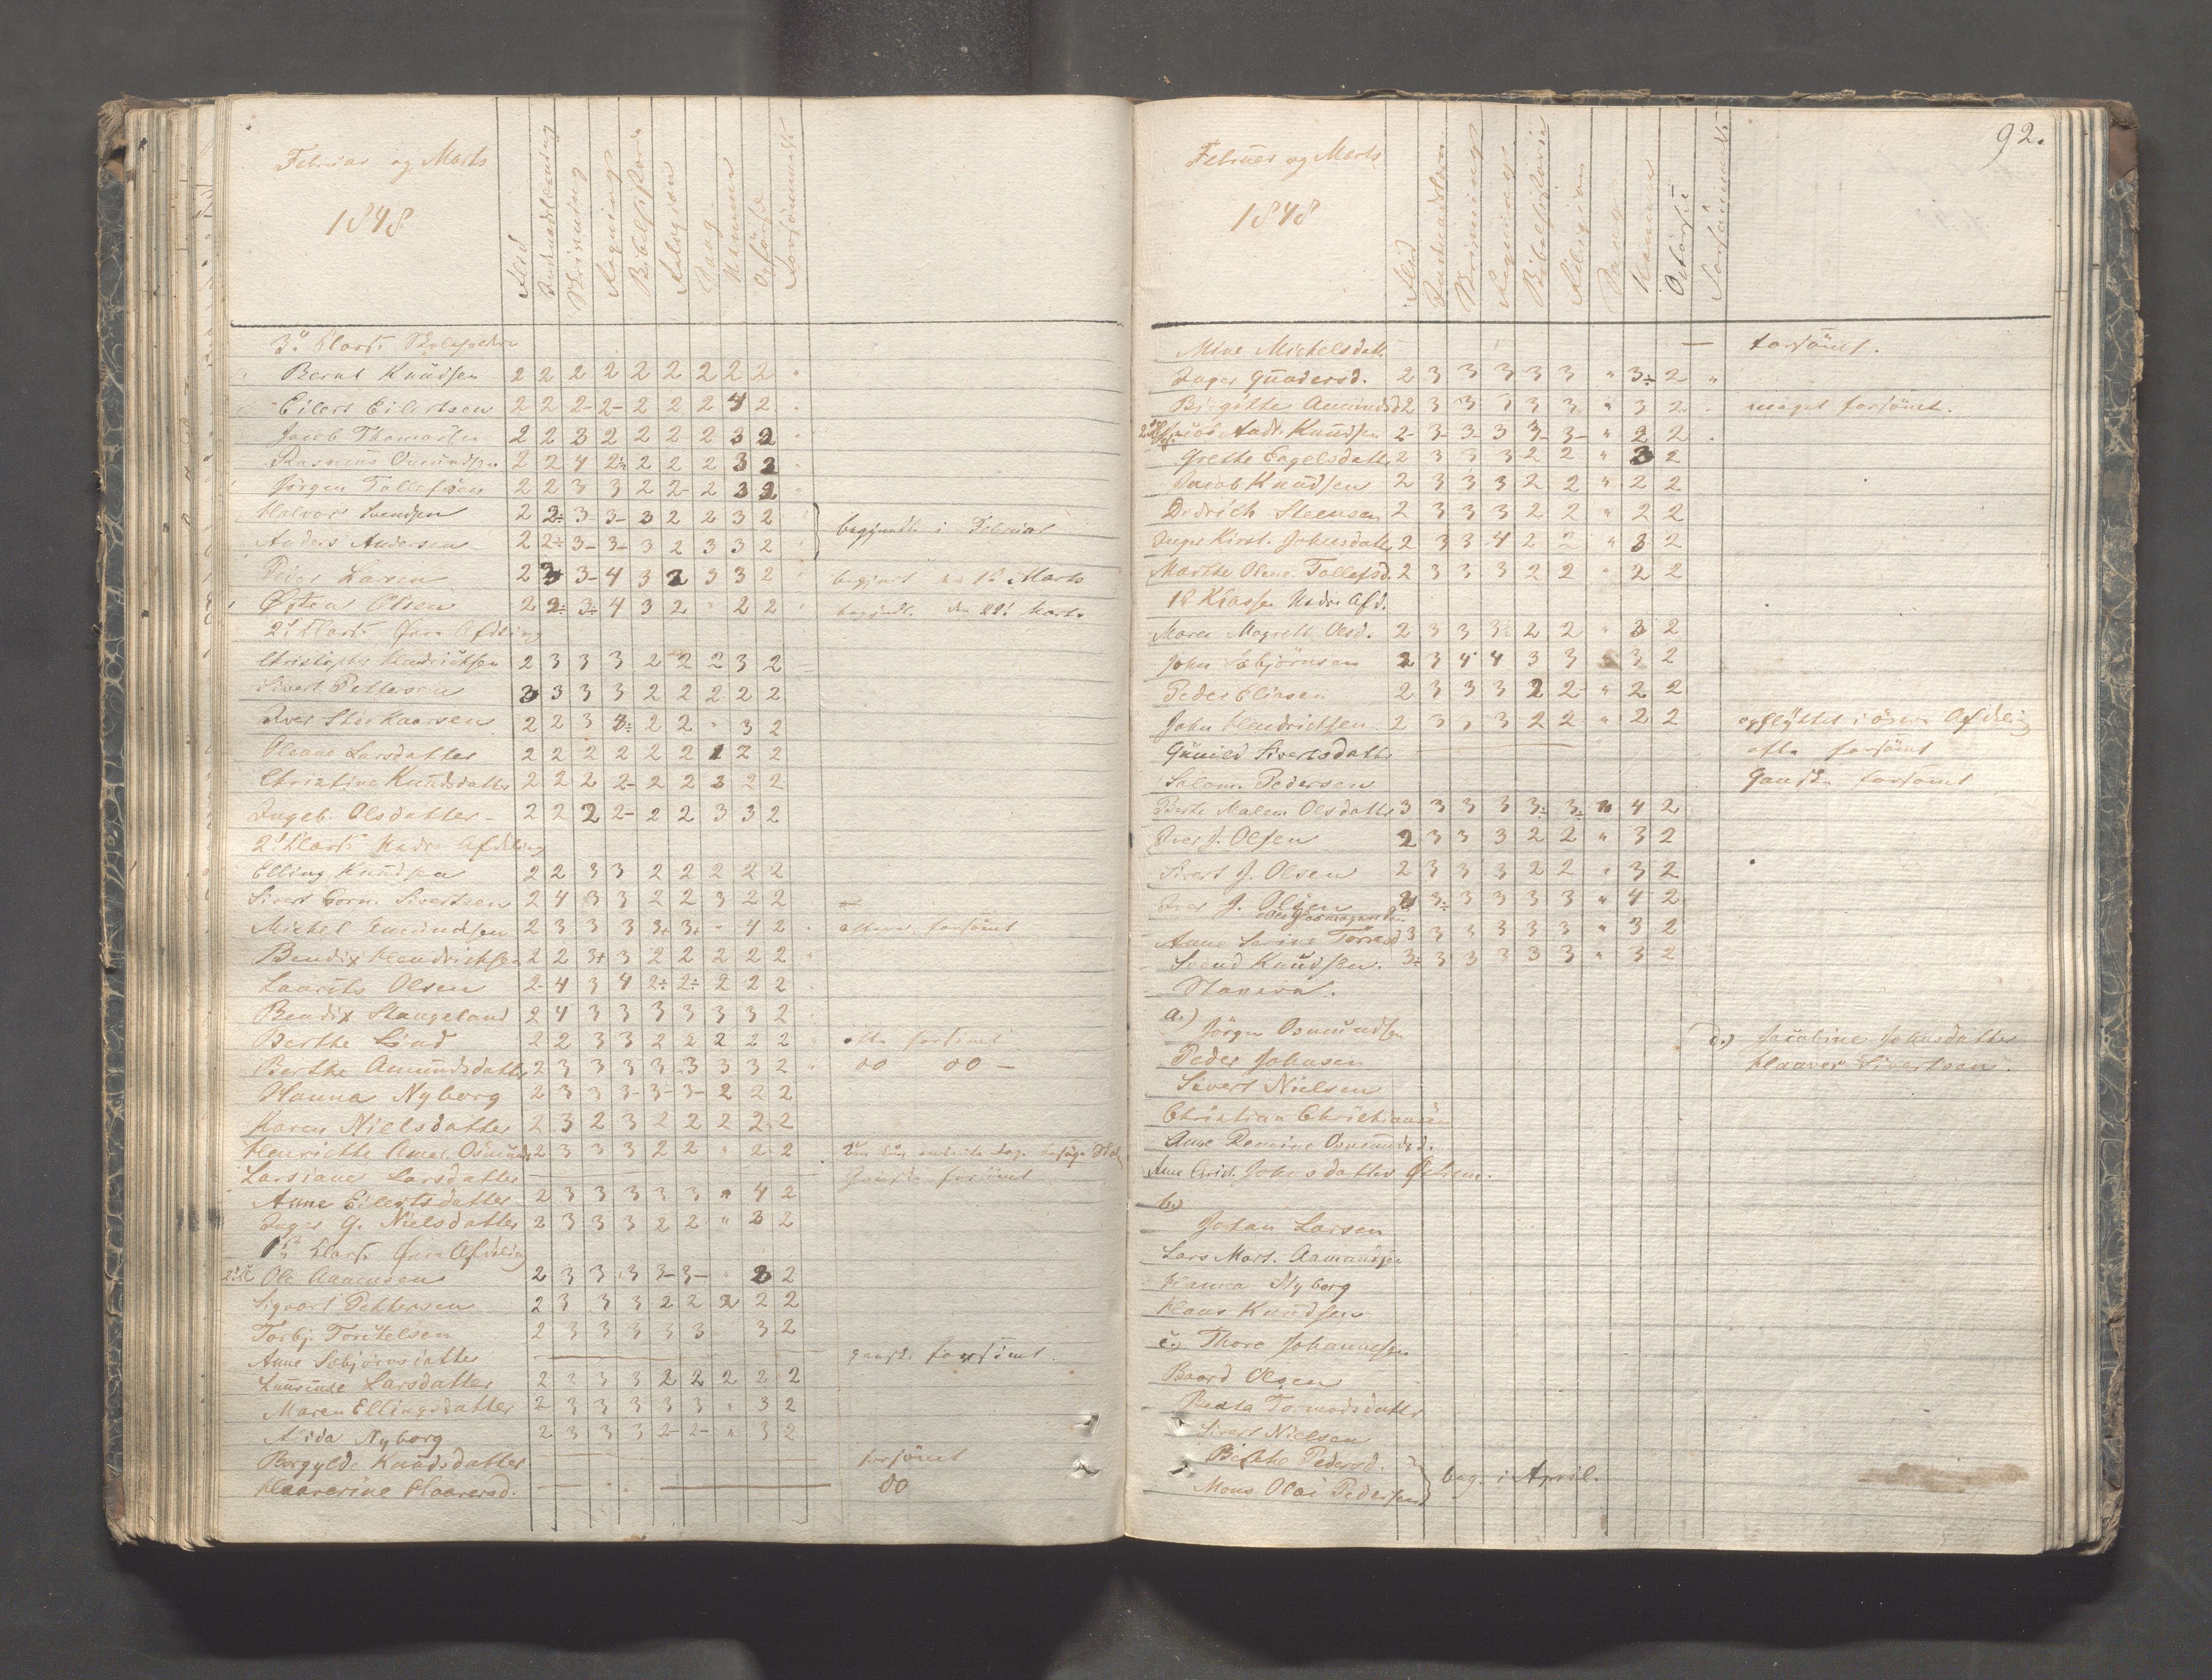 Februar og Marts
1848
Flid
Indenadslæsning
Skrivning
Regning
Bibelhistorie
Religion
Sang
Hannem
Opførsel
Forsømmelse
3die Klasse
Bernt Knudsen 2 2 2 2 2 2 2 2 2
Eilert Eilertsen 2 2 2- 2- 2 2 2 4 2
Jacob Thomassen 2 2 3 2 2 2 2 3 2
Rasmus Omundsen 2 2 4 2÷ 2 2 2 3 2
Jörgen Tollefsen 2 2 3 3 2 2- 2 3 2
Halvor Svendsen 2 2÷ 3- 3- 3 2 2 3 2
Anders Andersen 2 2÷ 3- 3- 3 2 3 3 2 begyndt i Februar
Peder Larsen 2 3 3- 4 3 2 3 3 2 Marts
Östen Olsen 2 2÷ 3÷ 4 3 2 " 2 2 den 22d Marts
2d Klasse Øvre Afdeling
Christopher Hendrichsen 2 3 3 3 2 2 2 3 2
Sivert Pettersen 3 3 3 3 2 2 2 2 2
Iver Storkaarsen 2 2 3 3÷ 2 2 " 3 2
Oleane Larsdatter 2 2 2 2 2 2 1 2 2
Christine Knudsdatter 2 2 2 2- 2 2 3 2 2
Ingeb. Olsdatter 2 2 2 2- 2 2 3 3 2
2d Klasse Nedre Afdeling
Elling Knudsen 2 2 3 3 2 2 2 2 2
Sivert Corn. Sivertsen 2 4 3 3 2 2 3 2 2
Michel Emundsen 2 3 3 3 3+ 3+ " 4 2 forsömt
Bendix Hendrichsen 2 2 3+ 3 2 2 2 2 2
Laurits Olsen 2- 4 3 4 2÷ 2÷ 2 2 2
Bendix Stangeland 2 4 3 3 3 3 3 3 2
Berthe Lind 2 2 3 3 2 2 2 2 2 ofte forsömt
Berthe Amundsdatter 2 3 3 3 3 3 3 3 2 do do —
Hanna Nyborg 2 3 3 3- 3- 3- 2 2 2
Karen Nielsdatter 2 3 2 3 2 2 2 2 2
Henriette Amal. Osmunds 2 3 3 3 2 2 " 2 2
Larsiane Larsdatter Ganske forsömt
Anne Eilertsdatter 2 3 3 3 3 3 " 4 2
Inger G. Nielsdatter 2 3 3 3 2 2 " 3 2
1ste Klasse Øvre Afdeling
Ole Aamensen 2 3 3 3 3- 3- 3 2
Sigvart Pettersen 2 3 3 3 2 2 2 2 2
Torbj. Torkelsen 2 3 3 3 3 3 3 2
Anne Sebjörnsdatter ganske forsömt
Larsdatter 2 3 3 3 2 2 2 2 2
Maren Ellingsdatter 2 3 3 3 3 3 " 3 2
Alida Nyborg 2 3 3 3 2- 2- " 3 2
Borgylde Knudsdatter forsömt
Haaverine Haaversd. do
92.
Februar og Marts
1848
Flid
Indenadslæsn
Skrivning
Regning
Bibelhistorie
Religion
Sang
Hannem
Opførsel
Forsömmelse
Mine Michelsdatt. — forsömt.
Inger Gundersd. 2 3 3 3 3 3 " 3÷ 2 "
Birgitte Amundsd 2 3 3 3 3 3 " 3 2 meget forsömt.
Jacob Andr. Knudsen 2- 3- 3- 3 3- 3- " 2 2
Grethe Tagelsdatter 2 3 3 3 2 2 " 3 2
Jacob Knudsen 2 3 3 3 2 2 " 2 2
Didrich Steensen 2 3 3 3 2 2 " 2 2
Inger Kirst. Johnsdatter 2 3 3 4 2 2 " 3 2
Marthe Olene Tollefsd. 2 3 3 3 2 2 " 2 2
1ste Klasse Nedre Afd.
Maren Magrett Olsd. 2 3 3 3÷ 2 2 " 3 2
John Sebjörnsen 2 3 4 4 3 3 3 2
Peder Eliasen 2 3 3 3 2 2 " 2 2
John Hendrichsen 2 3 3 3 2 2 " 2 2 opflyttet i övre Afdeling
Gunild Sivertsdatter ofte forsömt
Salom. Pedersen Ganske forsömt
Berte Malene Olsdatter 3 3 3 3 3÷ 3÷ " 4 2
Iver J. Olsen 2 3 3 3 2 2 " 3 2
Sivert J. Olsen 2 3 3 3 2 2 " 3 2
Iver G. Olsen 3 3÷ 3 3 3 3 " 4 2
Anne Serine Törresd 3 3 3 3 3 3 " 3 2
Svend Knudsen. 3÷ 3 3 3 3 3 " 3 2
a.)
Jörgen Osmundsen
Peder Johnsen
Sivert Nielsen
Christian Christiansen
Anne Osmundsd.
Anne Christ. Johnsdatter Østrem.
b.)
Johan Larsen
Lars Mart. Aamundsen
Hanna Nyborg
Hans Knudsen
c.) Thore Johannesen
Baard Olsen
Beata Tormodsdatter
Sivert Nielsen
Berthe Pedersd.
Mons Olai Pedersen } beg. i April.
d.) Jacobine Johnsdatter
Haaver Sivertsen.